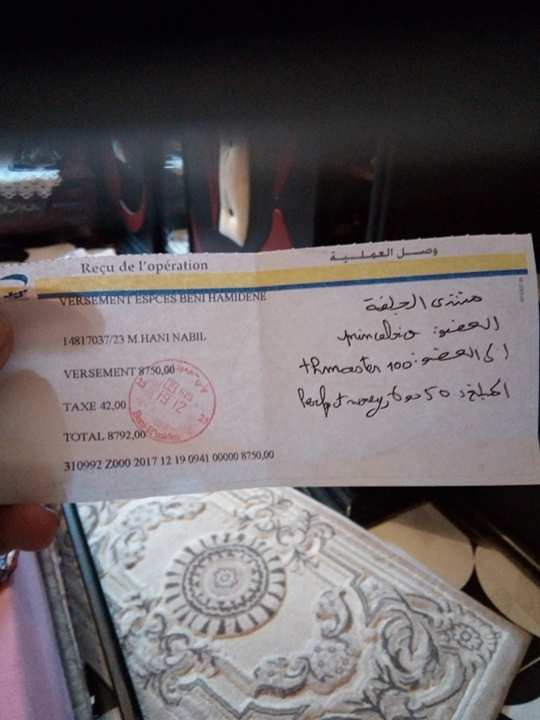 Reçu de l'opération
وصل العملية
VERSEMENT ESPCES BENI HAMIDENE
14817037/23 M.HANI NABIL
VERSEMENT 8750,00
TAXE 42,00
TOTAL 8792,00
310992 Z000 2017 12 19 0941 00000 8750,00
منتدى الجلفة
العضو: princebio
الى العضو: thmaster 100
المبلغ: 50 دولار Perfect money
19 12